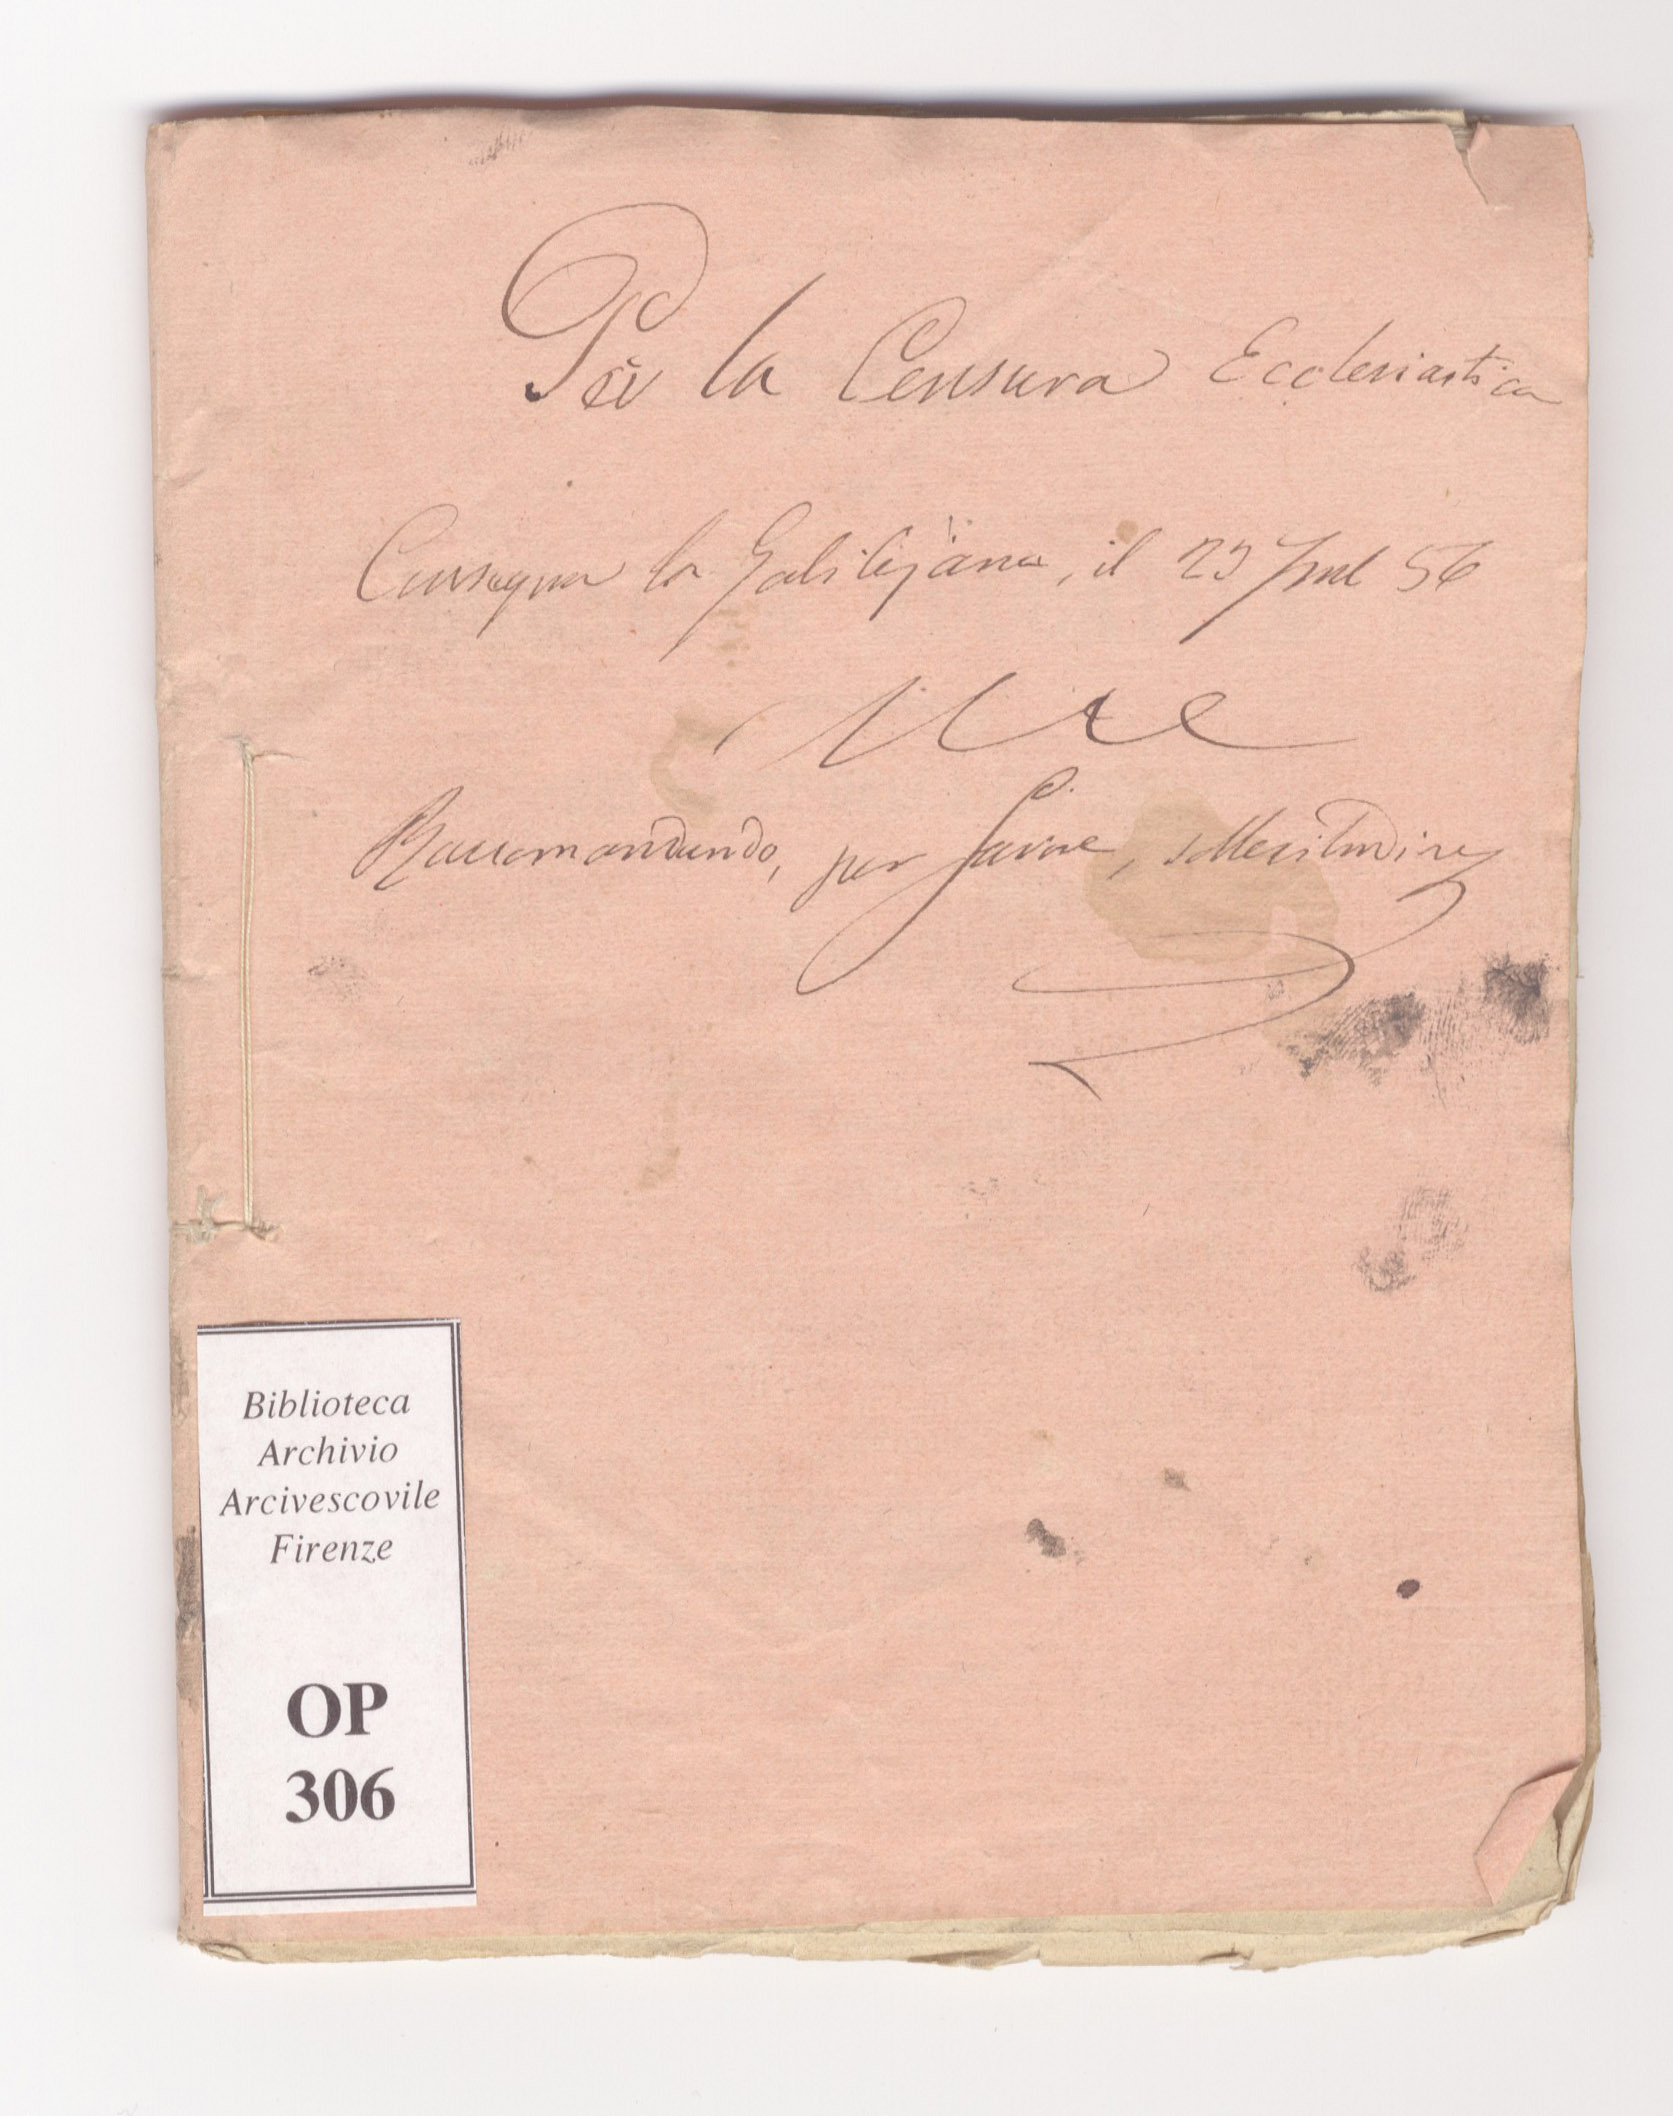 Per la Censura Ecclesiastica
Consegna la Galilejana, il 23 56
Raccomandando, per favore, sollecitudine
Biblioteca
Archivio
Arcivescovile
Firenze
OP
306